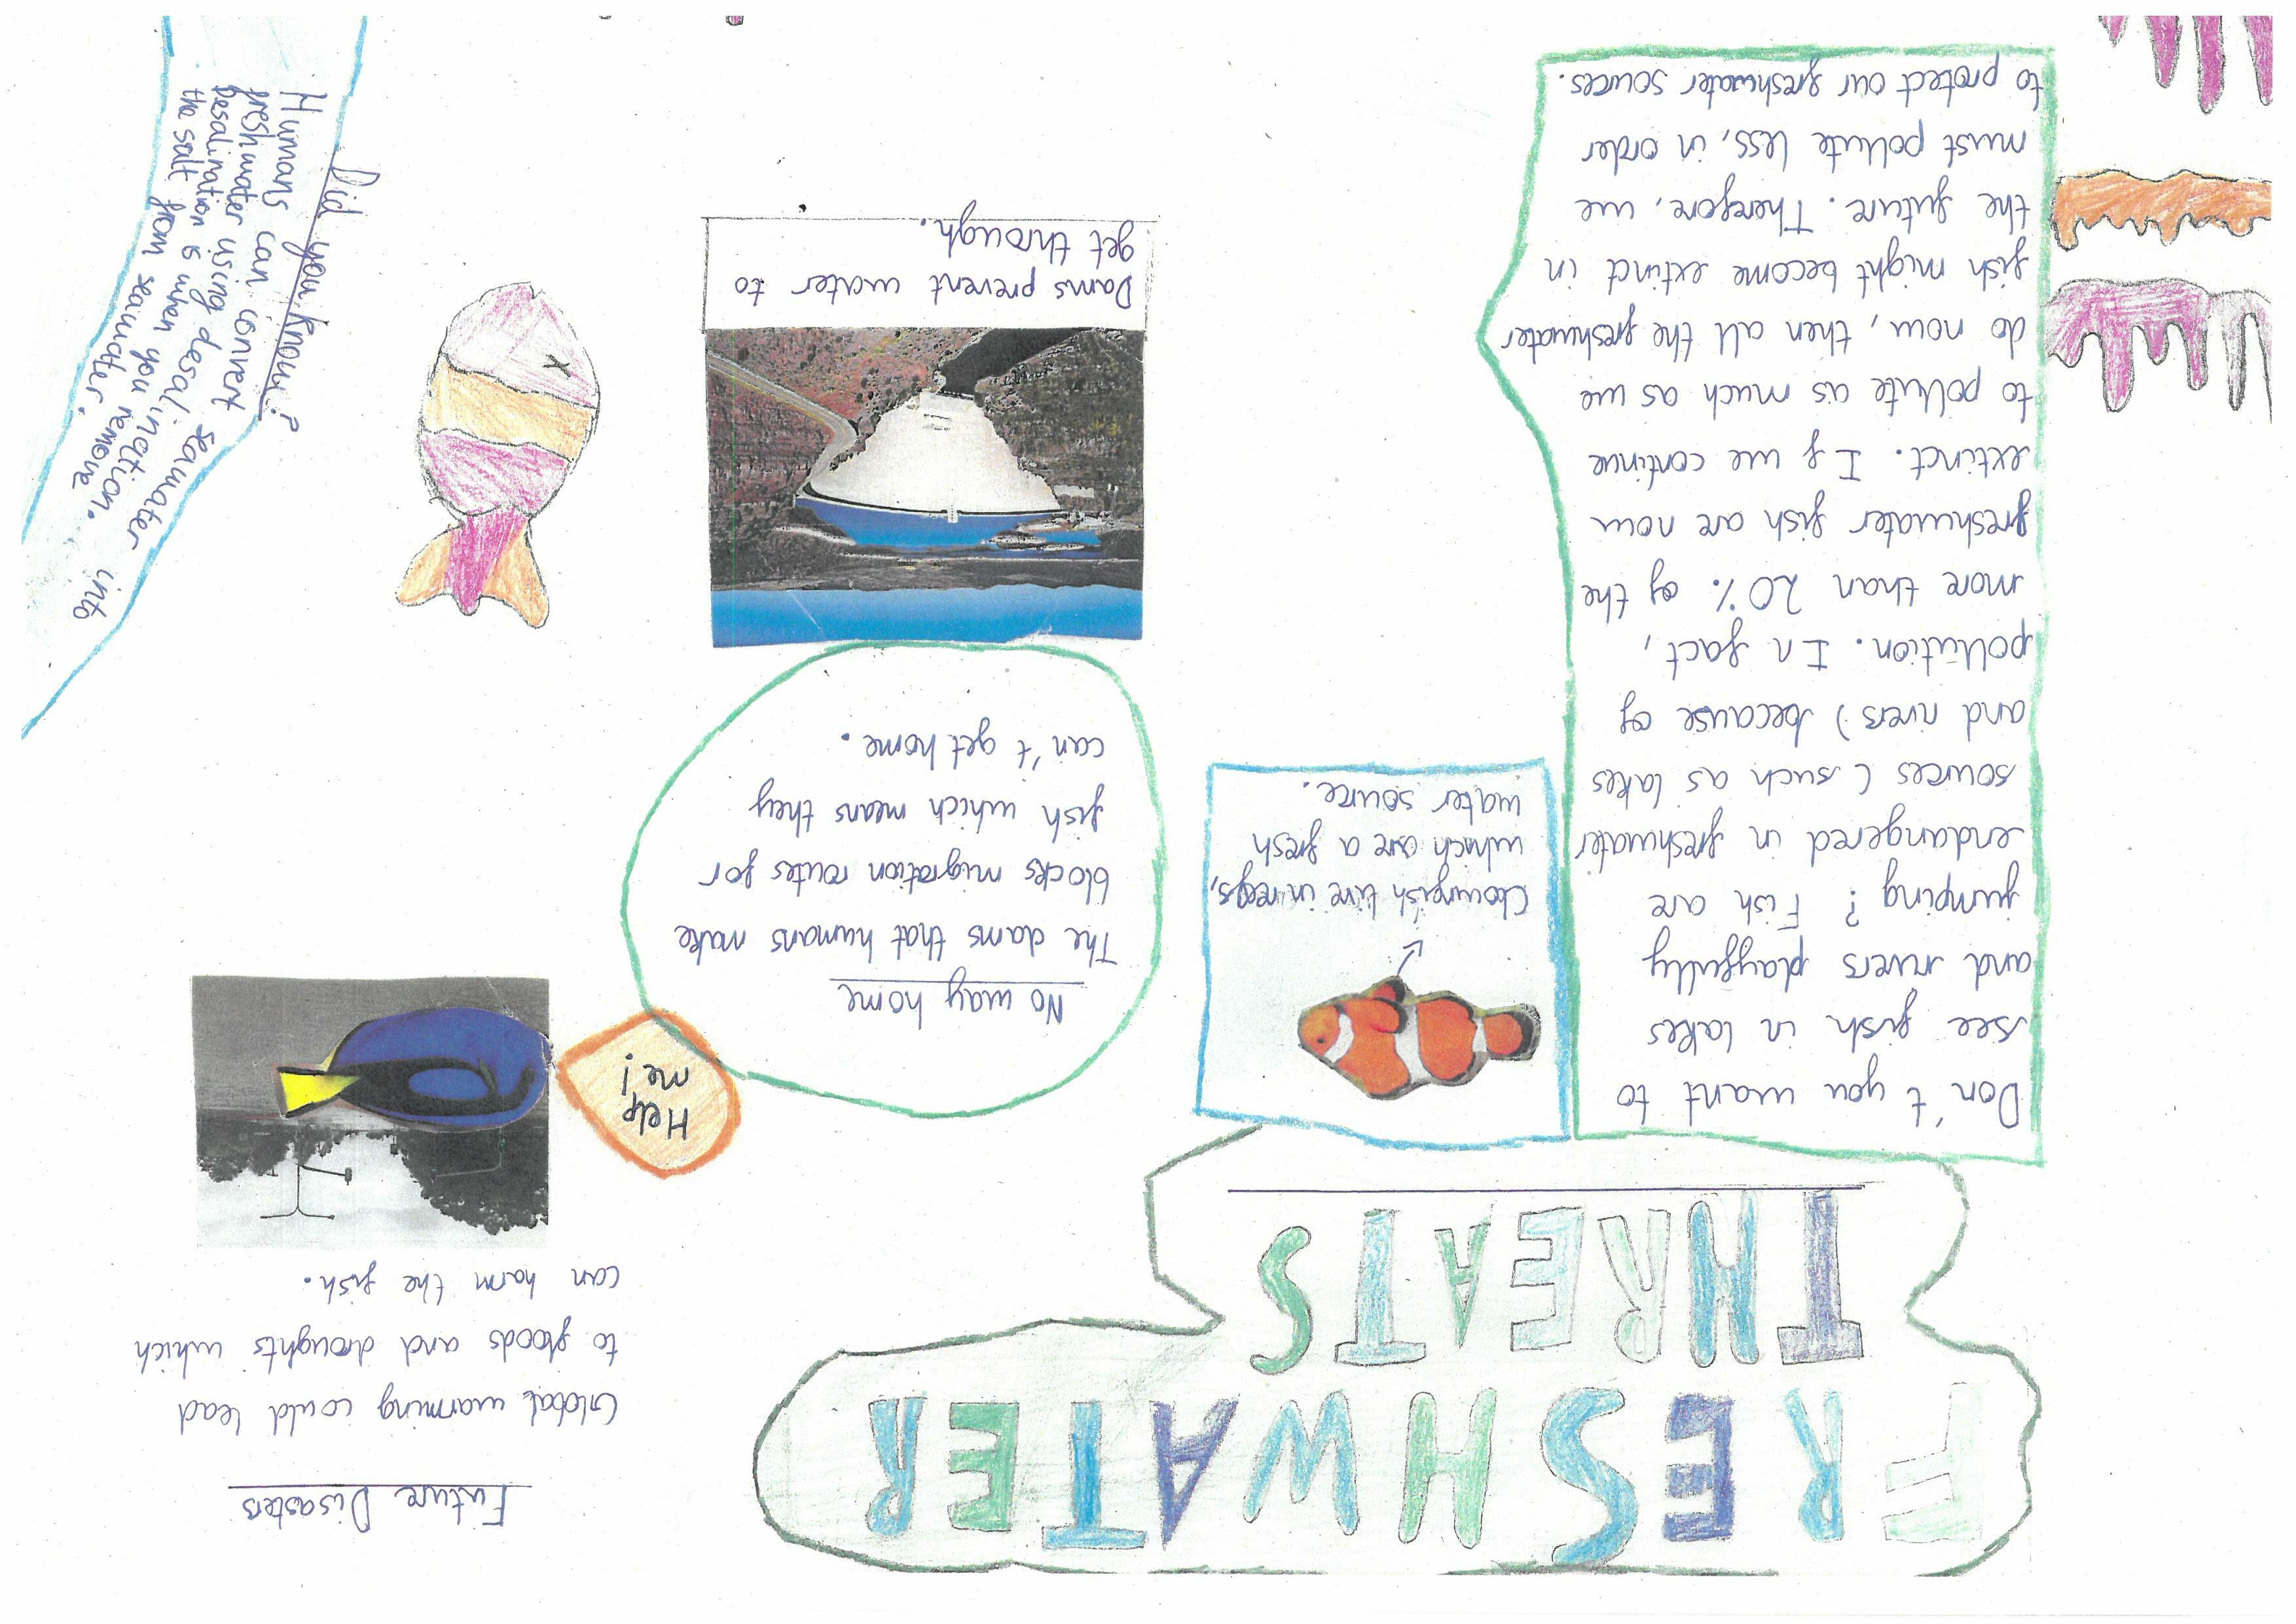 FRESHWATER
THREATS
Don't you want to
see fish in lakes
and rivers playfully
jumping? Fish are
endangered in freshwater
sources (such as lakes
and rivers) because of
pollution. In fact,
more than 20% of the
freshwater fish are now
extinct. If we continue
to pollute as much as we
do now, then all the freshwater
fish might become extinct in
the future. Therefore, we
must pollute less, in order
to protect our freshwater sources.
Clownfish live in reefs,
which are a fresh
water source.
No way home
The dams that humans make
blocks migration routes for
fish which means they
can't get home.
Dams prevent water to
get through.
Help
me!
Future Disasters
Global warming could lead
to floods and droughts which
can harm the fish.
Did you know?
Humans can convert seawater into
freshwater using desalination.
Desalination is when you remove
the salt from seawater.